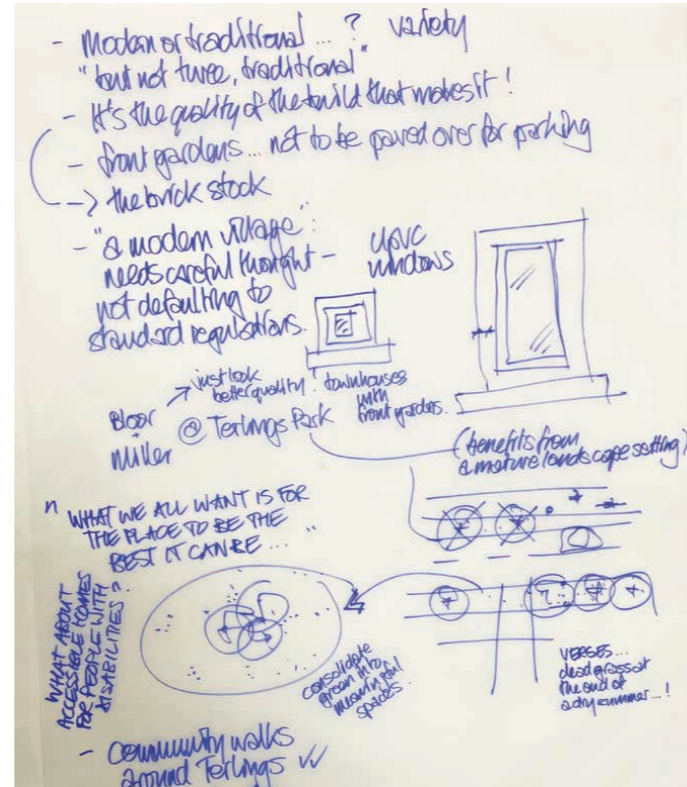 - Modern or traditional...? variety
"but not twee, traditional"
- It's the quality of the build that makes it!
- front gardens... not to be paved over for parking
-> the brick stock
- "a modern village":
needs careful thought -
not defaulting to
standard regulations.
UPVC
windows
Bloor
+
Miller
just look
better quality!
@ Terlings Park
townhouses
with
front gardens.
(benefits from
a mature landscape setting)
"WHAT WE ALL WANT IS FOR
THE PLACE TO BE THE
BEST IT CAN BE..."
WHAT ABOUT
ACCESSIBLE HOMES
FOR PEOPLE WITH
DISABILITIES?
consolidate
green into
meaningful
spaces.
VERGES...
dead grass at
the end of
a dry summer...!
- Community walks
around Terlings